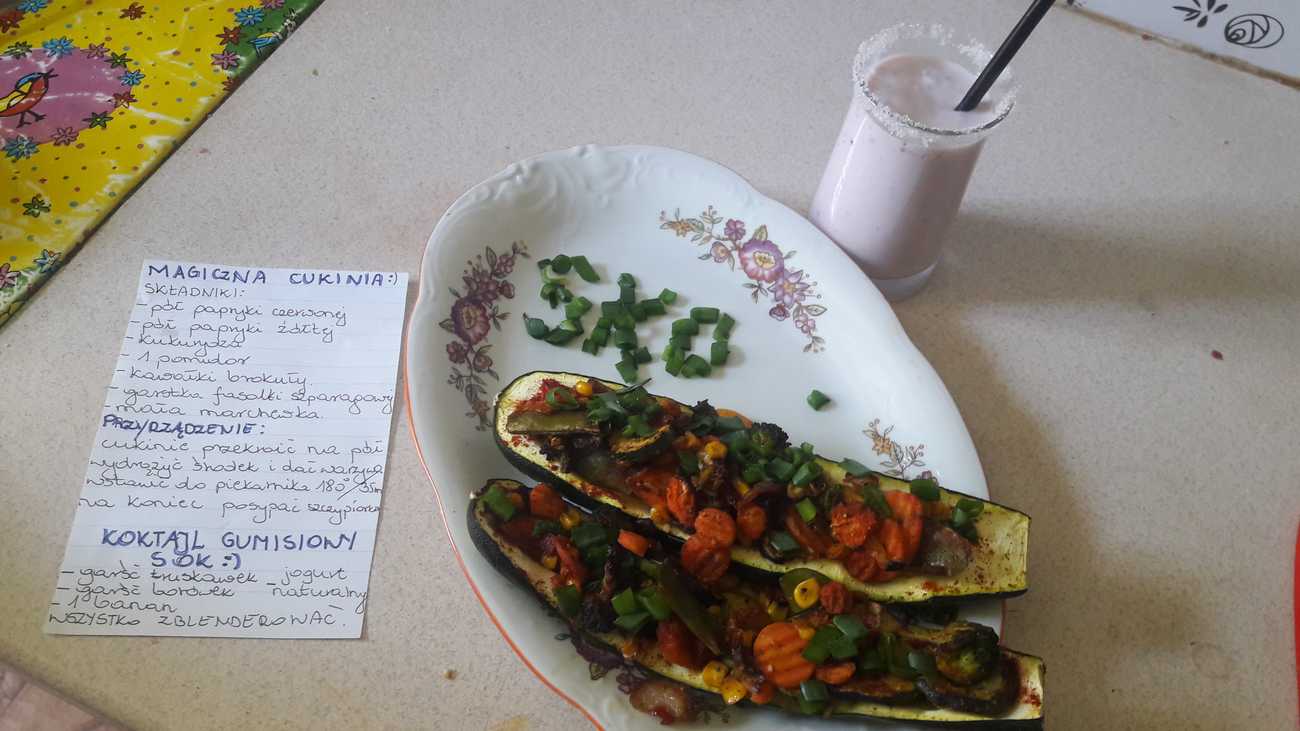 MAGICZNA CUKINIA:)
SKŁADNIKI:
- pół papryki czerwonej
- pół papryki żółtej
- kukurydza
- 1 pomidor
- kawałki brokuły
- garstka fasolki szparagowej
mała marchewka.
PRZYRZĄDZENIE:
cukinie przekroić na pół
wydrążyć środek i dać warzywa
wstawić do piekarnika 180°/35m
na koniec posypać szczypiorkiem
KOKTAJL GUMISIOWY
SOK:)
- garść truskawek - jogurt
- garść borówek naturalny
- 1 banan
WSZYSTKO ZBLENDEROWAĆ.